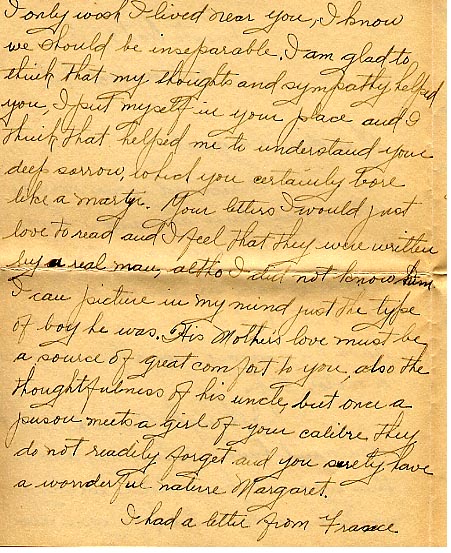 I only wish I lived near you, I know
we should be inseparable. I am glad to
think that my thoughts and sympathy helped
you, I put myself in your place and I
think that helped me to understand your
deep sorrow, which you certainly bore
like a martyr. Your letters I would just
love to read and I feel that they were written
by a real man, altho I did not know him
I can picture in my mind just the type
of boy he was. His Mother's love must be
a source of great comfort to you, also the
thoughtfulness of his uncle, but once a
person meets a girl of your calibre they
do not readily forget and you surely have
a wonderful nature Margaret.
I had a letter from France